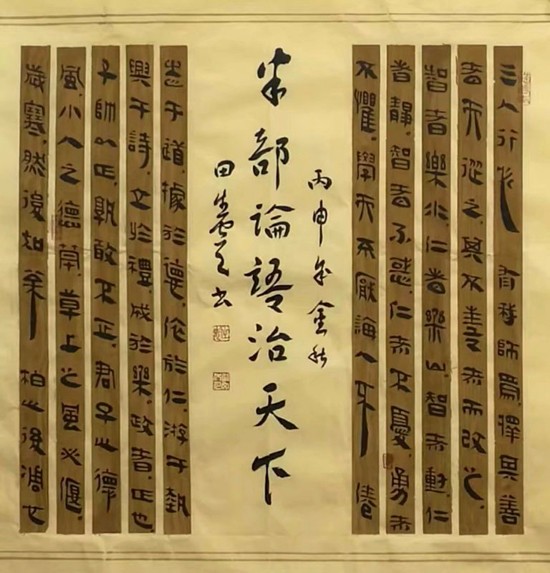 三人行必有我師焉擇其善
者而從之其不善者而改之
智者樂水仁者樂山智者動仁
者靜智者不惑仁者不憂勇者
不懼學而不厭誨人不倦
丙申年金秋
半部論語治天下
田书
志于道據於德依於仁游于藝
興于詩立於禮成於樂政者正也
子帥以正孰敢不正君子之德
風小人之德草草上之風必偃
歲寒然後知松柏之後凋也